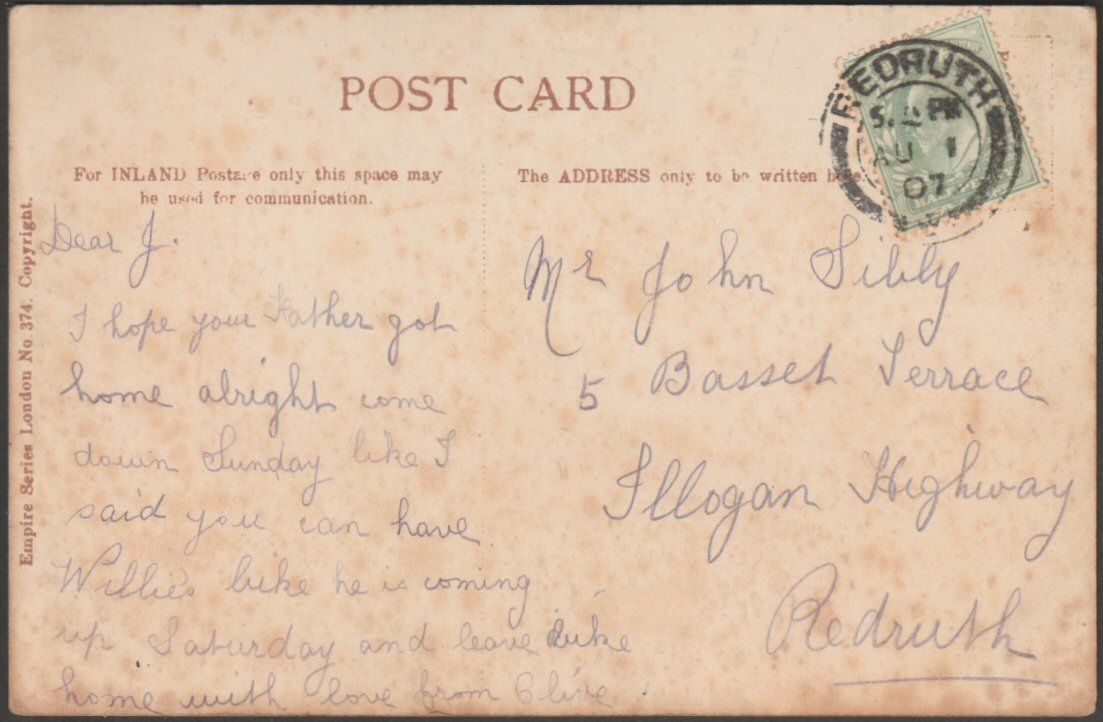 POST CARD
For INLAND Postage only this space may
be used for communication.
The ADDRESS only to be written here
REDRUTH
PM
AU 1
07
Empire Series London No. 374. Copyright.
Dear J.
I hope your Father got
home alright come
down Sunday like I
said you can have
Willies bike he is coming
up Saturday and leave bike
home with love from Olive.
Mr John Sibly
5 Basset Terrace
Illogan Highway
Redruth